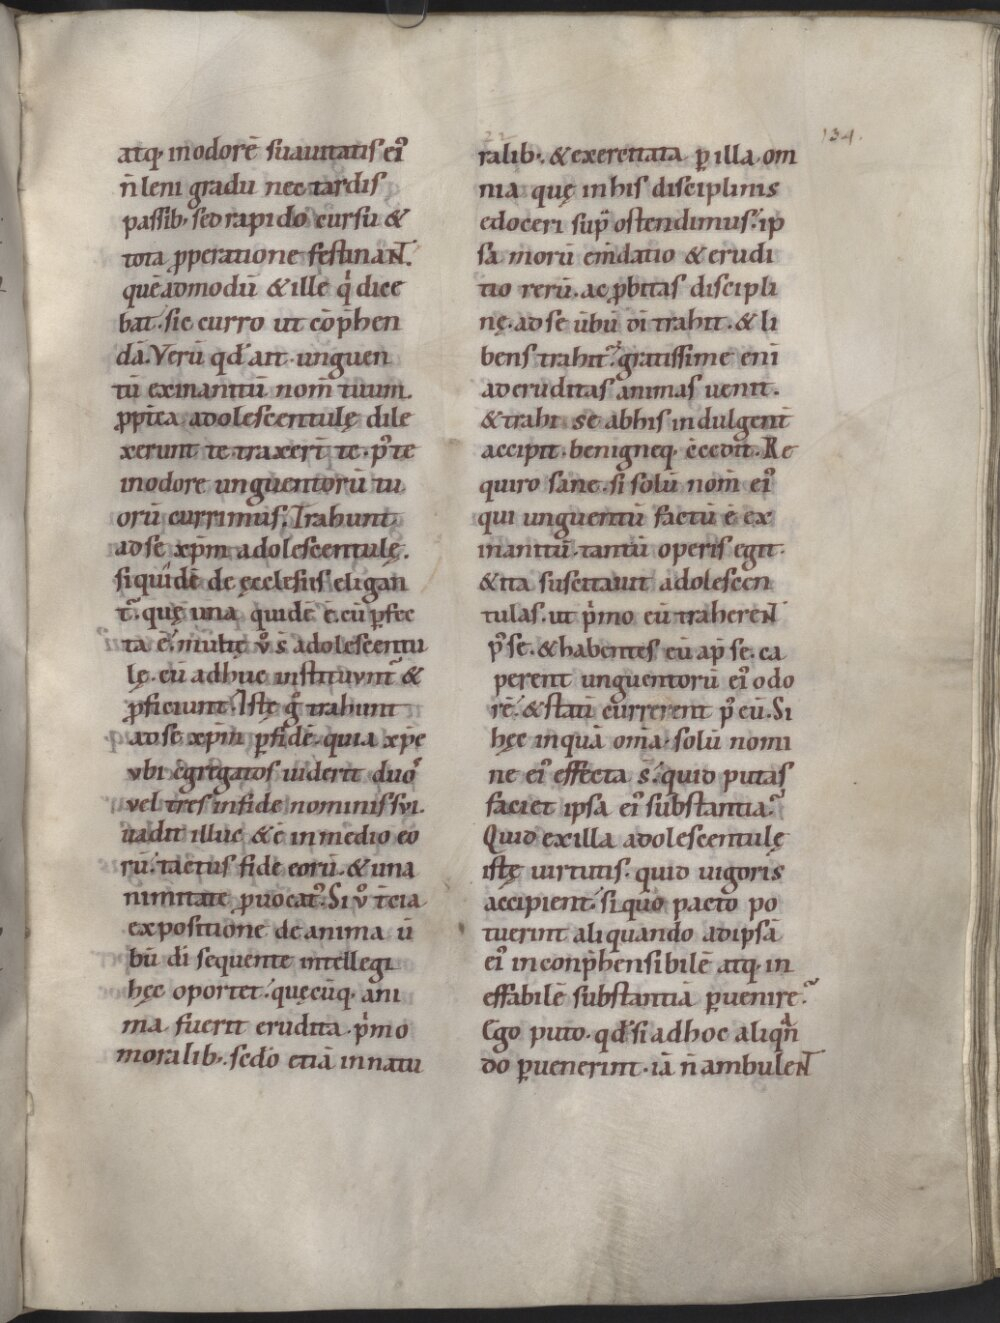 134.
22
atq· inodorē suauitatis ei᾽
n̄ leni gradu nec tardis
passib· sed rapido cursu &
tota ꝓperatione festinaNT.
quēadmodū & ille qͥ dice
bat. sic curro ut cōp̄hen
dā. Verū qd̛ ait· unguen
tū exinanitū nom̄ tuum.
ꝓpt̄ea adolescentulę dile
xerunt te traxer̄t te· p᾽ te
inodore unguentorū tu
orū currimus. Trahunt
adse xp̄m adolescentulę.
siquidē de ęcclesiis eligan
t᾽· quę una quidē ē· cū ꝑfec
ta ē· multę v᾽ s̄ adolescentu
lę· cū adhuc instituunt᾽ &
ꝓficiunt. Istę g᾽ trahunt
adse xp̄m ꝑ fidē· quia xp̄c
ubi ęgregatos uiderit duo᾽
vel tres infide nominis sui·
uadit illuc & ē inmedio eo
rū· tactus fide eorū· & una
nimitate ꝓuocat᾽. Si v᾽ t̄cia
expositione de anima ū
bū dī sequente intellegi
hęc oportet· quęcūq· ani
ma fuerit erudita p̄mo
moralib·. sedō etiā innatu
ralib·. & exercitata ꝑ illa om
nia quę inhis disciplinis
edoceri sup̄ ostendimus· ip
sa morū em̄datio & erudi
tio rerū· ac ꝓbitas discipli
nę· adse ūbū dī trahit· & li
bens trahit᾽· gratissime enī
aderuditas animas uenit·
& trahi se abhis indulgent̄
accipit· benigneq· c̄cedit. Re
quiro sane· si solū nom̄ ei᾽
qui unguentū factū ē ex
inanitū· tantū operis egit·
& ita suscitauit adolescen
tulas· ut p̄mo eū trahereNT
p᾽ se· & habentes eū ap̄ se· ca
perent unguentorū ei᾽ odo
rē· & statī currerent p᾽ eū. Si
hęc inquā om̄a· solū nomi
ne ei᾽ effecta s̄· quid putas
faciet ipsa ei᾽ substantia?
Quid exilla adolescentulę
istę uirtutis· quid uigoris
accipient· siquo pacto po
tuerint aliquando adipsā
ei᾽ inconp̄hensibilē atq· in
effabilē substantiā ꝑuenire?
Ego puto· qd̛ si adhoc aliqn̄
do ꝑuenerint· iā n̄ ambuleNT